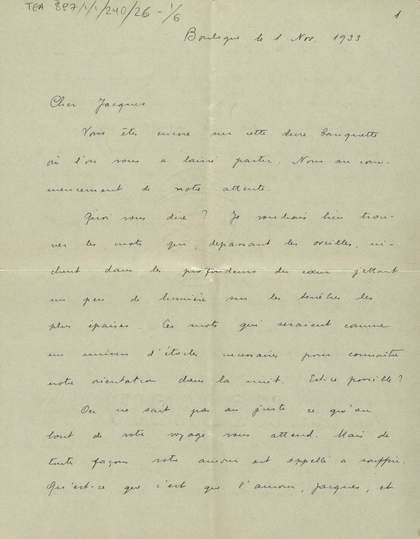 TEA 897/1/1/240/26 - 1/6
1
Boulogne le 1 Nov 1933
Cher Jacques
Vous êtes encore sur cette dure banquette
où l'on vous a laissé partir. Nous au com-
mencement de notre attente.
Quoi vous dire? Je voudrais bien trou-
ver les mots qui, dépassant les oreilles,
dans les profondeurs du cœur jettant
un peu de lumière sur les ténèbres les
plus épaisses. Ces mots qui seraient comme
un univers d'étoiles nécessaires pour connaître
notre orientation dans la nuit. Est-ce possible?
On ne sait pas au juste ce qu'au
bout de votre voyage vous attend. Mais de
toute façon votre amour est appellé a souffrir.
Qu'est-ce que c'est que l'amour, Jacques, et